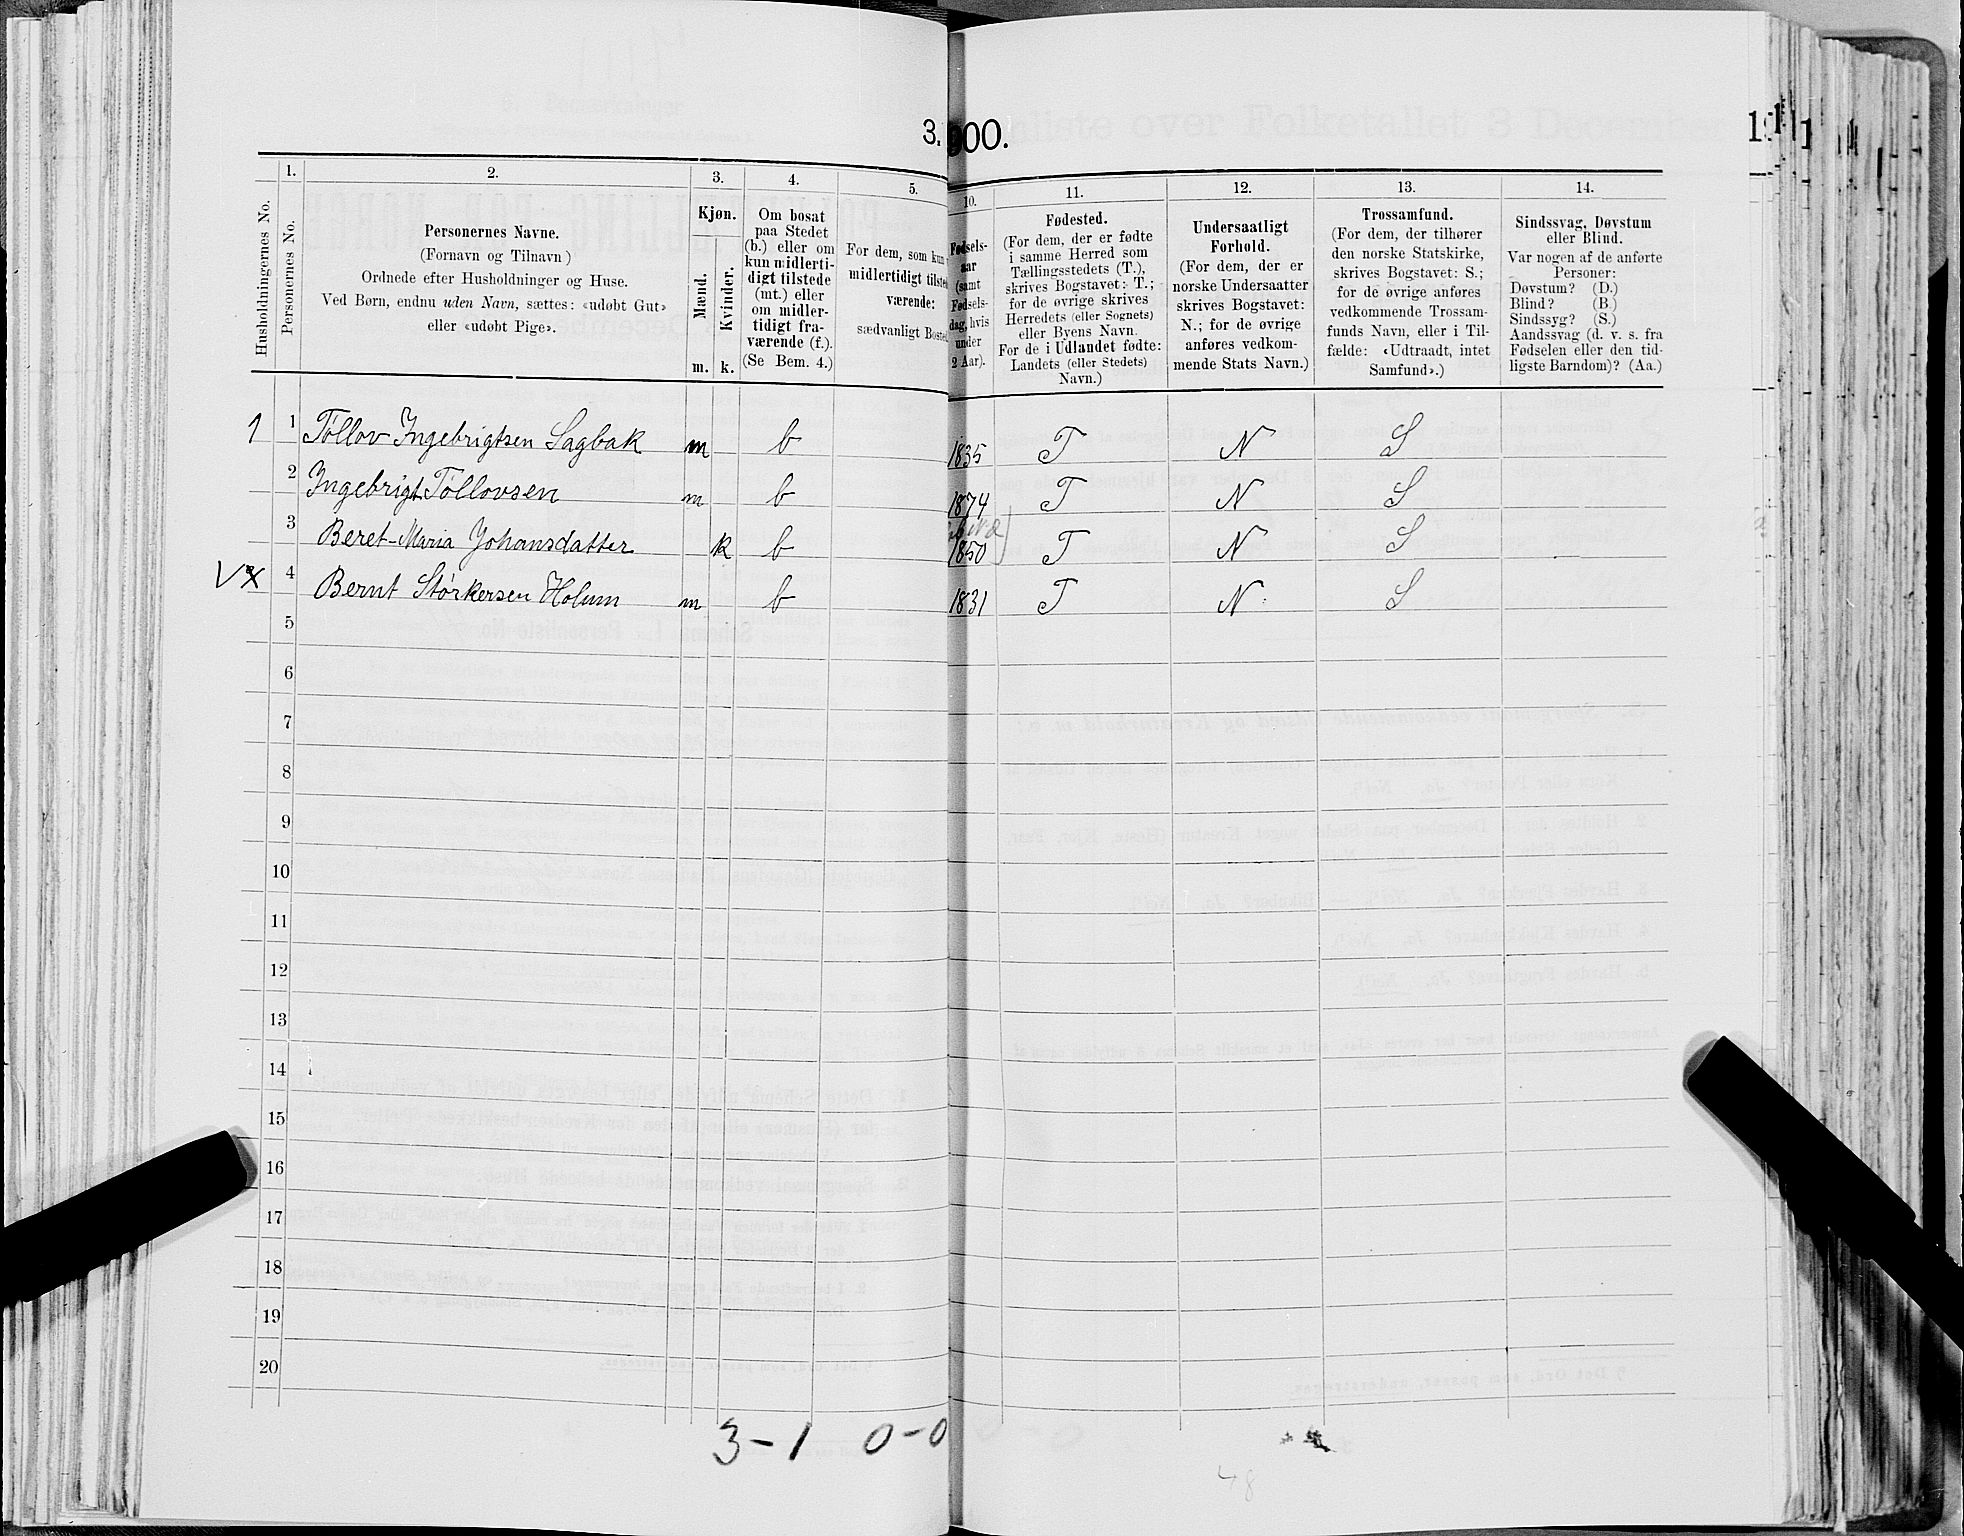 3.
000.
1.
2.
3.
4.
5.
10.
11.
12.
13.
14.
Husholdningernes No.
Personernes No.
Personernes Navne.
(Fornavn og Tilnavn)
Ordnede efter Husholdninger og Huse.
Ved Børn, endnu uden Navn, sættes: «udøbt Gut»
eller «udøbt Pige».
Kjøn.
Mænd.
Kvinder.
m. k.
Om bosat
paa Stedet
(b.) eller om
kun midlerti-
digt tilstede
(mt.) eller
om midler-
tidigt fra-
værende (f.).
(Se Bem. 4.)
For dem, som kun
midlertidigt tilste
værende:
sædvanligt Bosted
Fødsels-
aar
(samt
Fødsels-
dag, hvis
under
2 Aar).
Fødested.
(For dem, der er fødte
i samme Herred som
Tællingsstedets (T.),
skrives Bogstavet: T.;
for de øvrige skrives
Herredets (eller Sognets)
eller Byens Navn.
For de i Udlandet fødte:
Landets (eller Stedets)
Navn.)
Undersaatligt
Forhold.
(For dem, der er
norske Undersaatter
skrives Bogstavet:
N.; for de øvrige
anføres vedkom-
mende Stats Navn.)
Trossamfund.
(For dem, der tilhører
den norske Statskirke,
skrives Bogstavet: S.;
for de øvrige anføres
vedkommende Trossam-
funds Navn, eller i Til-
fælde: «Udtraadt, intet
Samfund».)
Sindssvag, Døvstum
eller Blind.
Var nogen af de anførte
Personer:
Døvstum? (D.)
Blind? (B.)
Sindssyg? (S.)
Aandssvag (d. v. s. fra
Fødselen eller den tid-
ligste Barndom)? (Aa.)
1 1 Tøllov Ingebrigtsen Sagbak m b 1835 T N S
2 Ingebrigt Tøllovsen m b 1874 T N S
3 Beret-Maria Johansdatter k b 1850 T N S
4 Bernt Størkersen Holum m b 1831 T N S
5
6
7
8
9
10
11
12
13
14
15
16
17
18
19
20
3-1 0-0
48